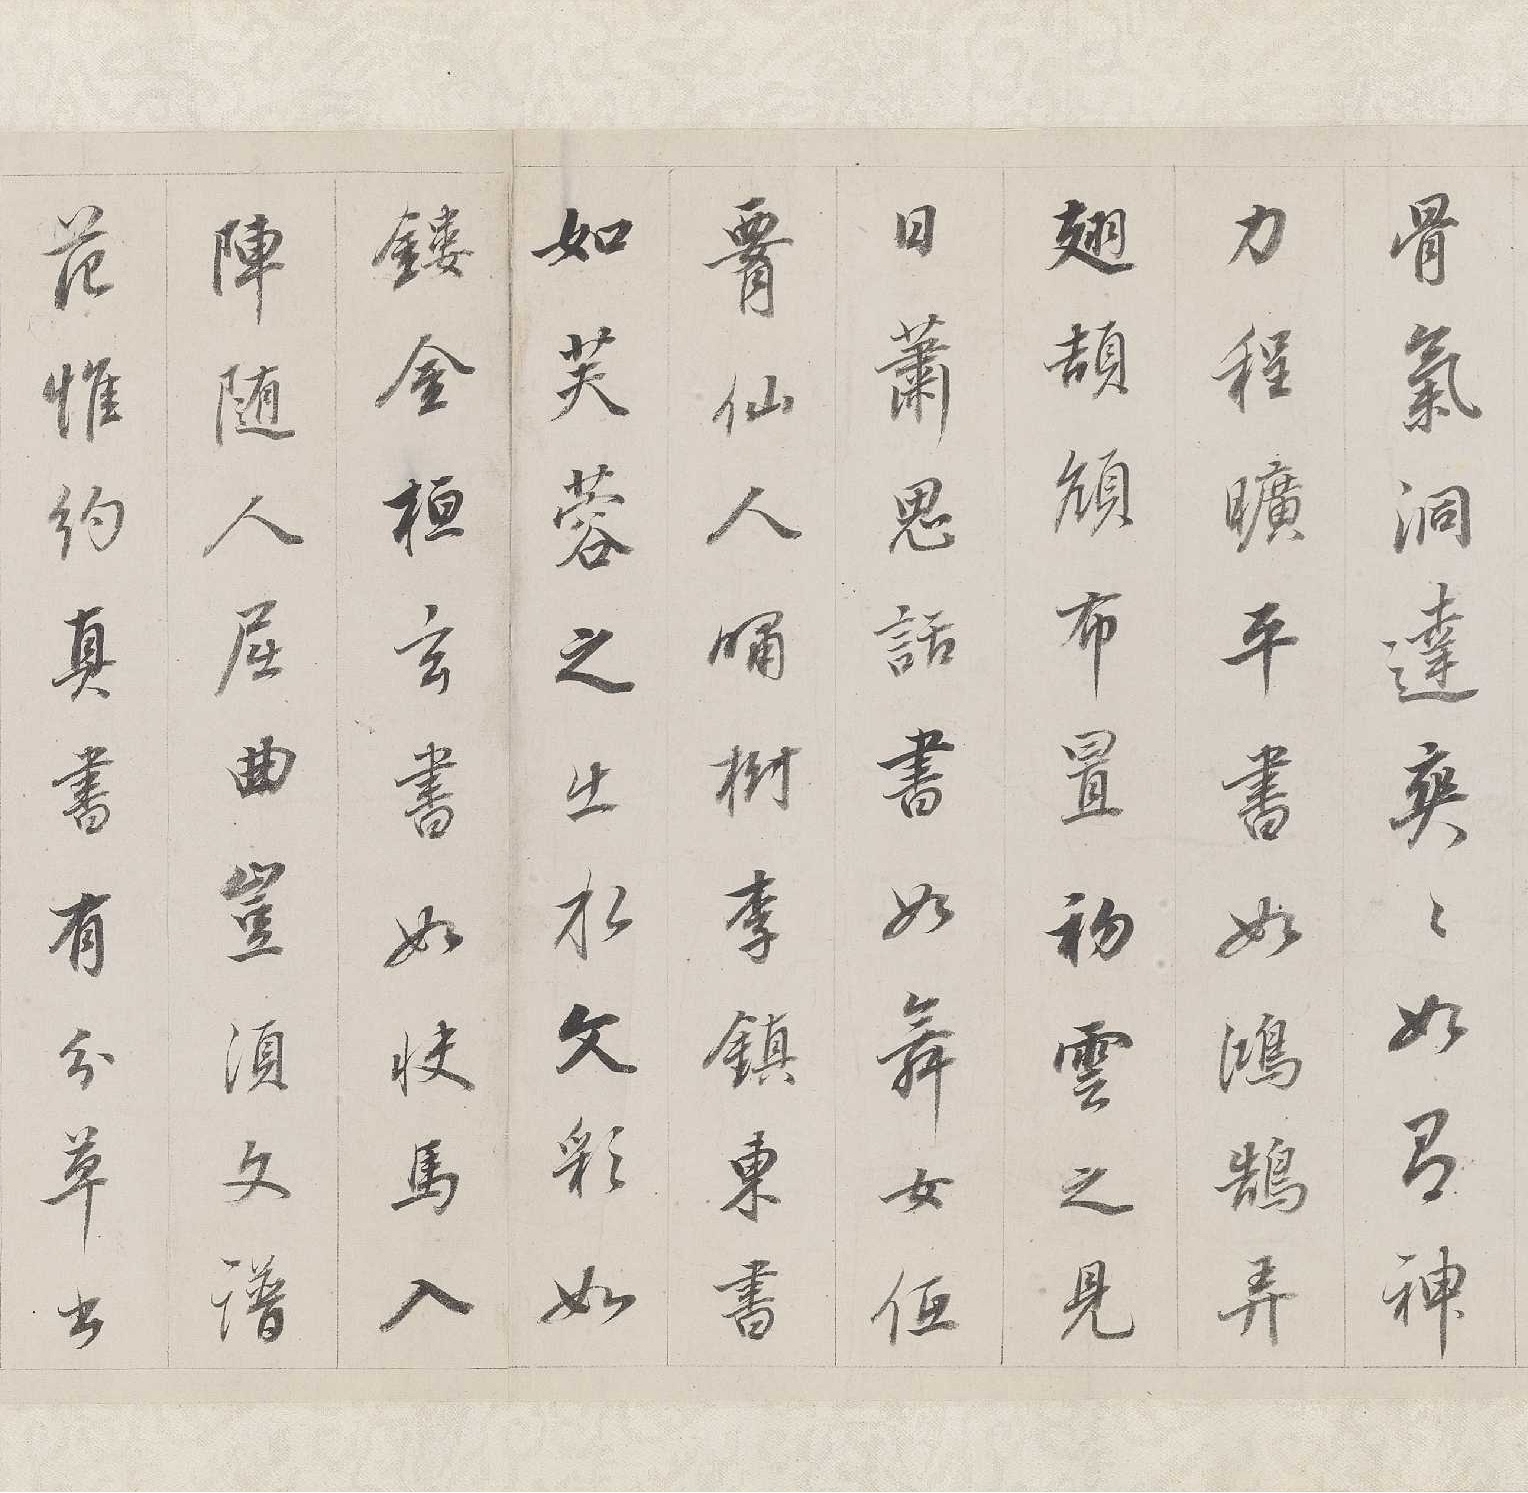 骨氣洞達爽〻如有神
力程曠平書如鴻鵠弄
翅頡頏布置初雲之見
日蕭思話書如舞女低
䏚仙人嘯樹李鎮東書
如芙蓉之出水文彩如
鏤金桓玄書如快馬入
陣隨人屈曲豈須文譜
范惟約真書有分草書